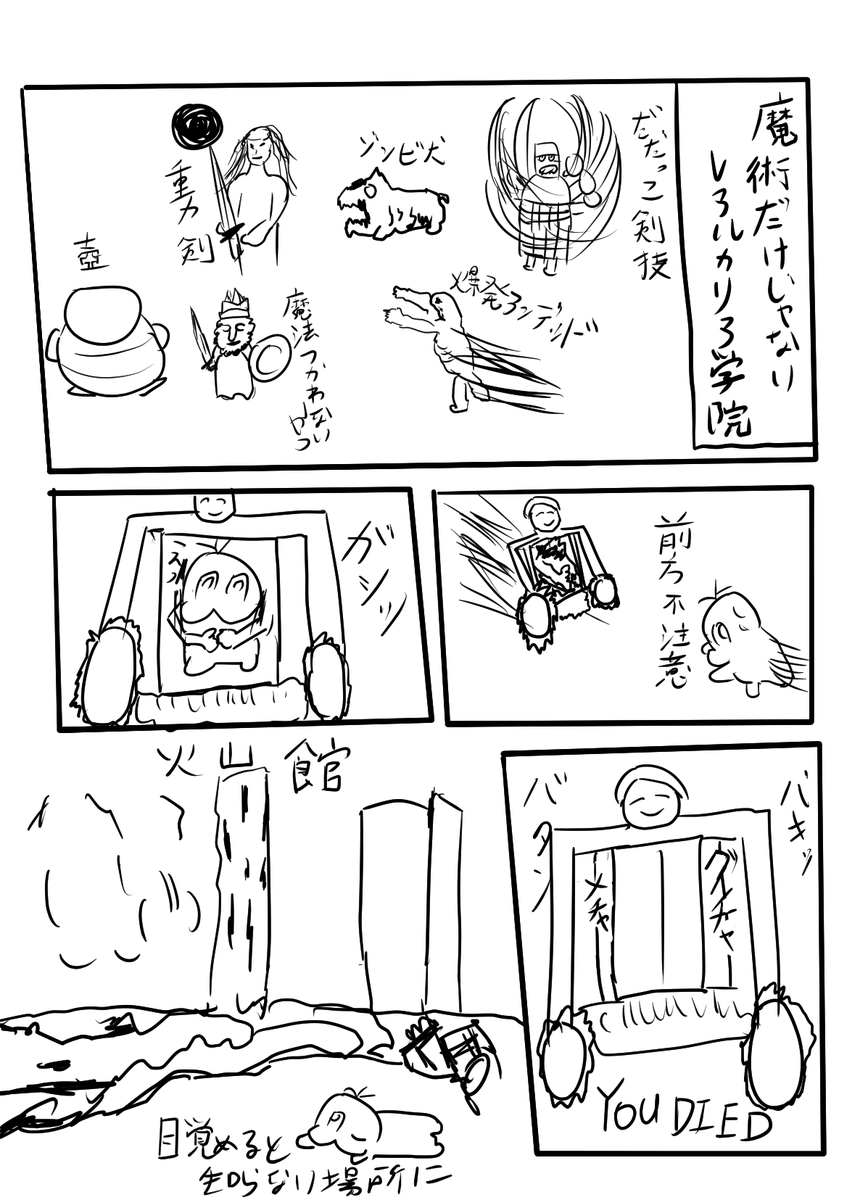 魔術だけじゃない
レアルカリア学院
だだっこ剣技
ゾンビ犬
重力剣
爆発アンデッド
魔法つかわない
やつ
壺
前方不注意
ガシッ
バキッ
バタン
グイチャー
メチャ
YOU DIED
火山館
目覚めると
知らない場所に